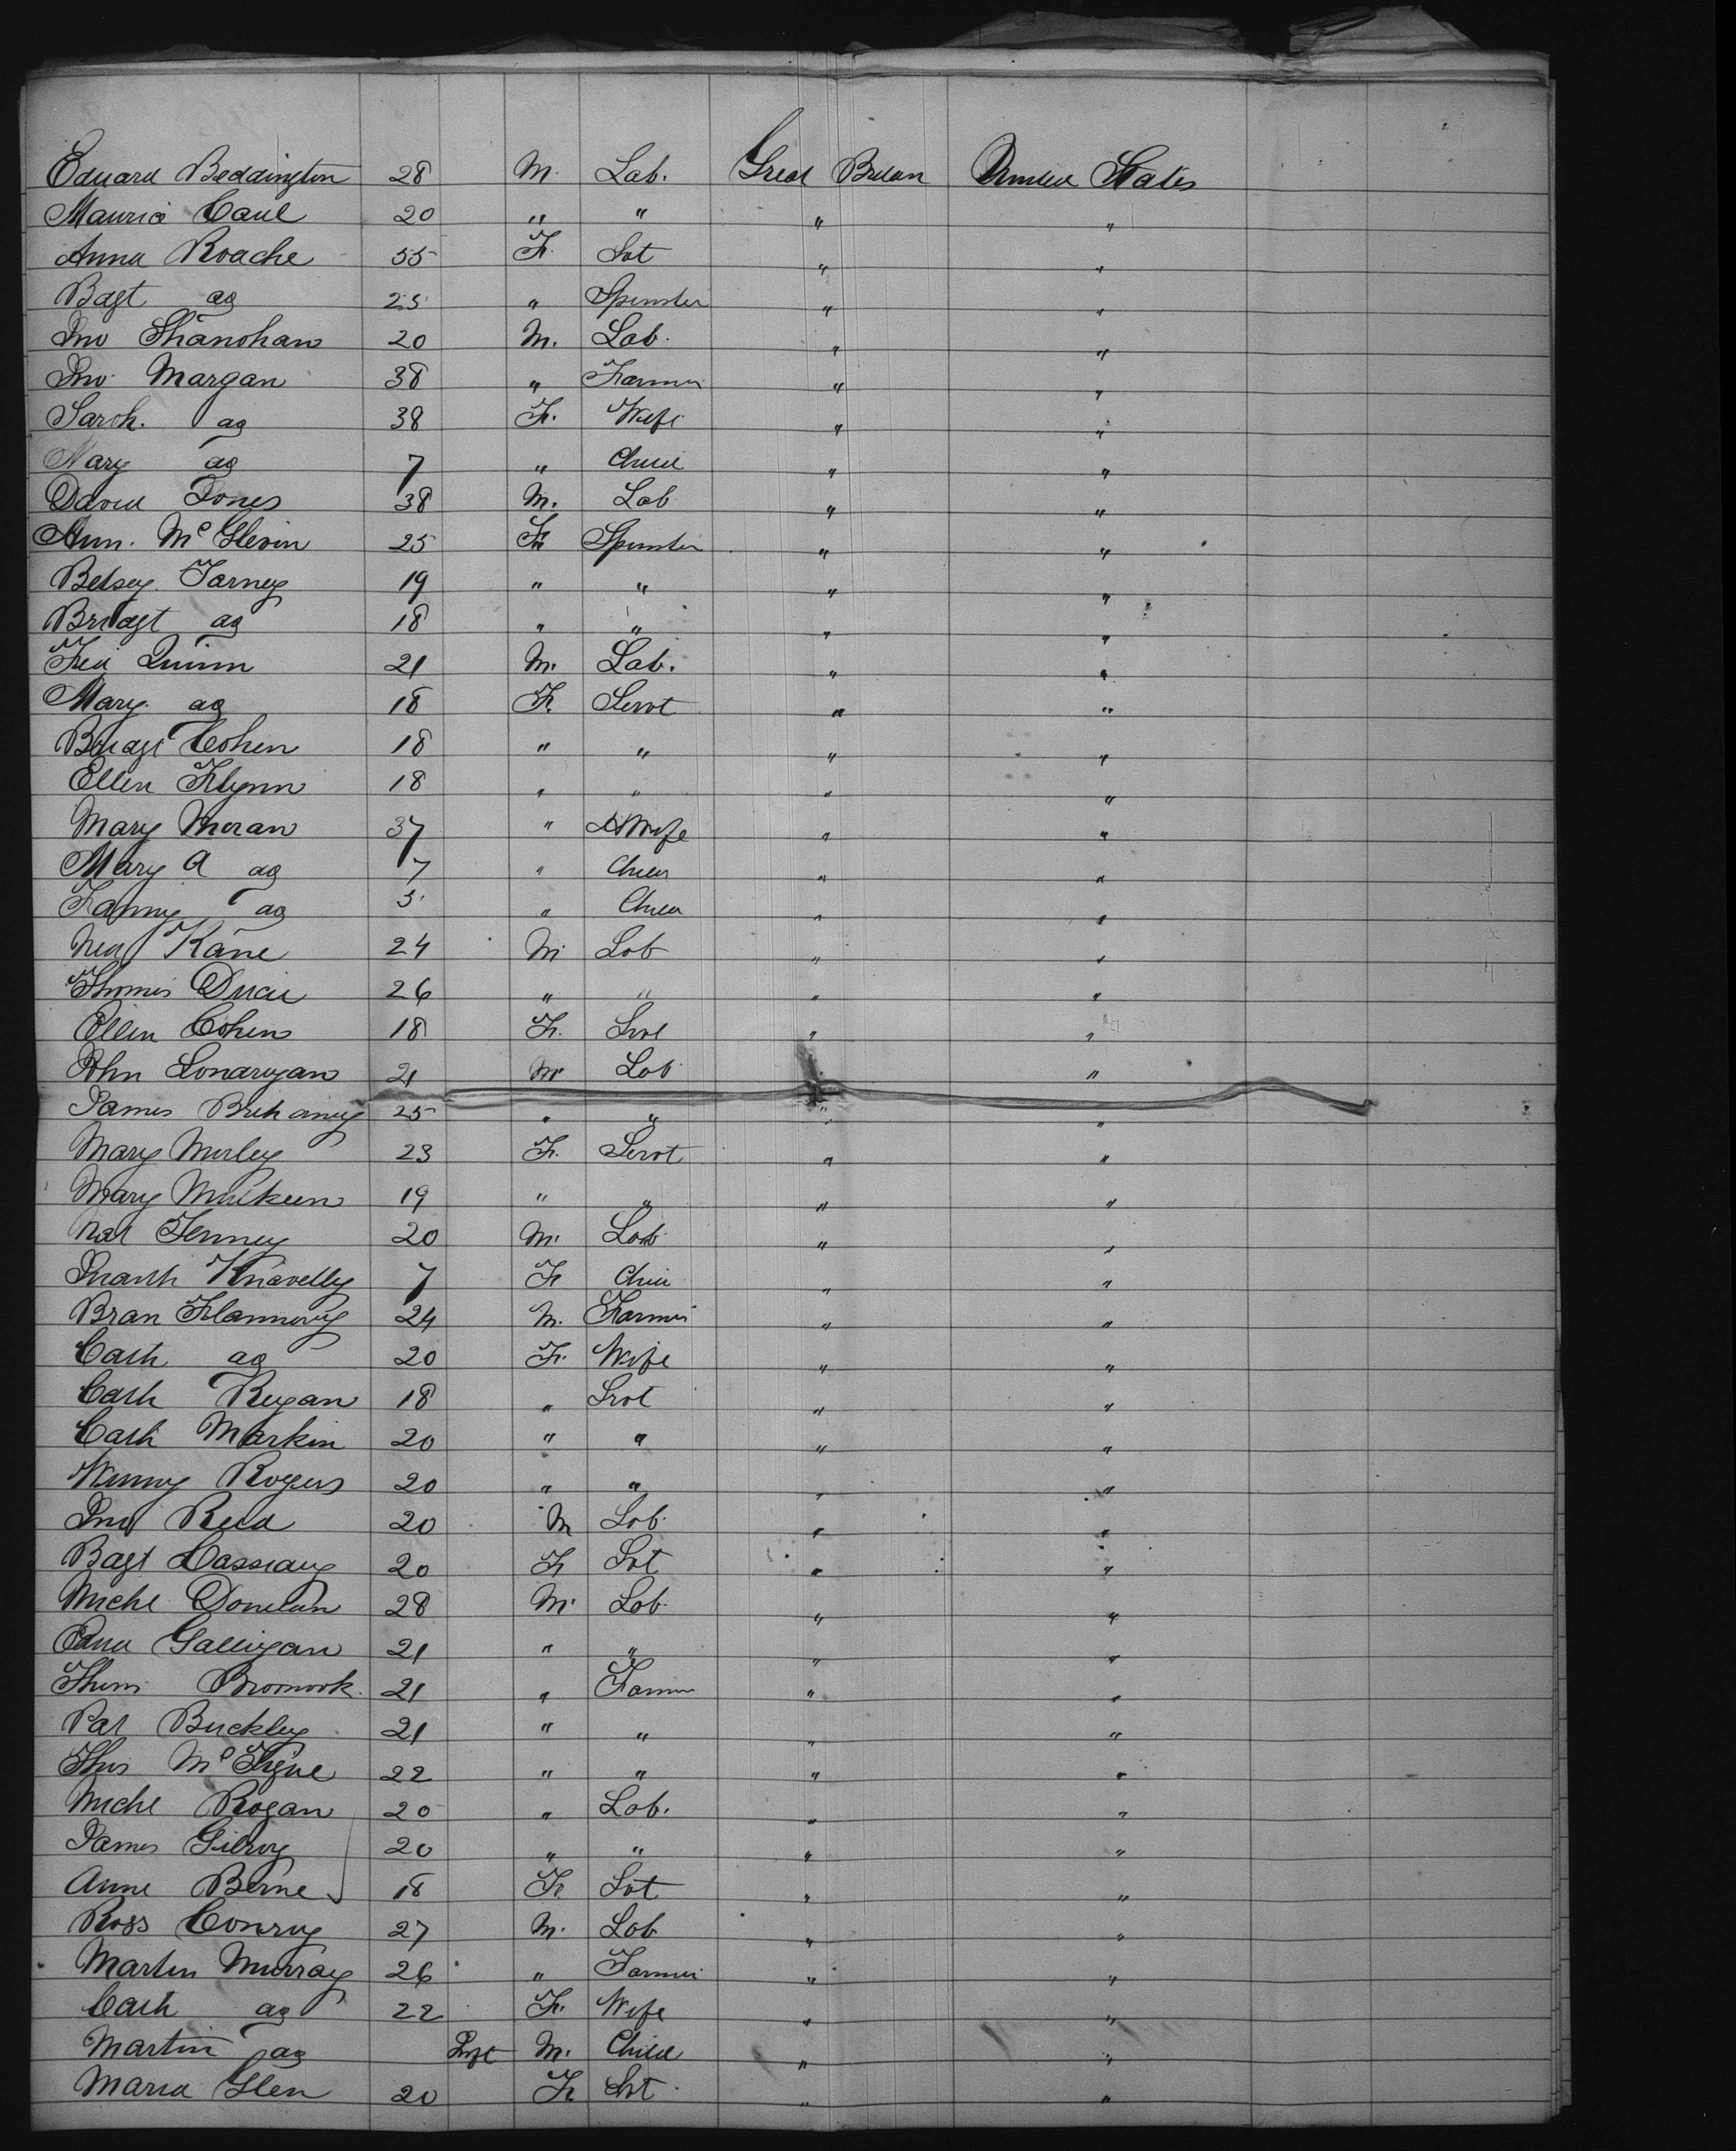 Edward Beddington 28 M. Lab. Great Britan United States
Maurice Caul 20 " " " "
Anna Roache 55 F. Svt " "
Bdgt do 25 " Spinster " "
Jno Shanohan 20 M. Lab. " "
Jno Margan 38 " Farmer " "
Sarah. do 38 F. Wife " "
Mary do 7 " Child " "
David Jones 38 M. Lab " "
Ann. McGlevin 25 F. Spinster " "
Betsey 19 " " " "
Bridgt do 18 " " " "
Quinn 21 M. Lab. " "
Mary do 18 F. Servt " "
Bridgt Cohen 18 " " " "
Ellen Flynn 18 " " " "
Mary Moran 37 " Wife " "
Mary A do 7 " Child " "
Fanny do 5 " Child " "
Ned Kane 24 M. Lab " "
Thomas 26 " " " "
Ellen Cohen 18 F. Srvt " "
John Lonargan 21 M Lab " "
James 25 " " " "
Mary Murley 23 F. Servt " "
Mary Mulkeen 19 " " " "
Nat Fenney 20 M. Lab " "
7 F Child " "
Bran Flannery 24 M. Farmer " "
Cath do 20 F. Wife " "
Cath Regan 18 " Srvt " "
Cath Markin 20 " " " "
Winny Rogers 20 " " " "
Jno Reid 20 M Lab. " "
Bdgt 20 F Svt " "
Michl Donelan 28 M. Lab. " "
Galligan 21 " " " "
Thos 21 " Farmer " "
Pat Buckley 21 " " " "
Thos 22 " " " "
Michl Rogan 20 " Lab. " "
James Gilroy 20 " " " "
Anne Birne 18 F. Svt " "
Ross Conroy 27 M. Lab " "
Martin Murray 26 " Farmer " "
Cath do 22 F. Wife " "
Martin do Inft M. Child " "
Maria Glen 20 F Svt " "